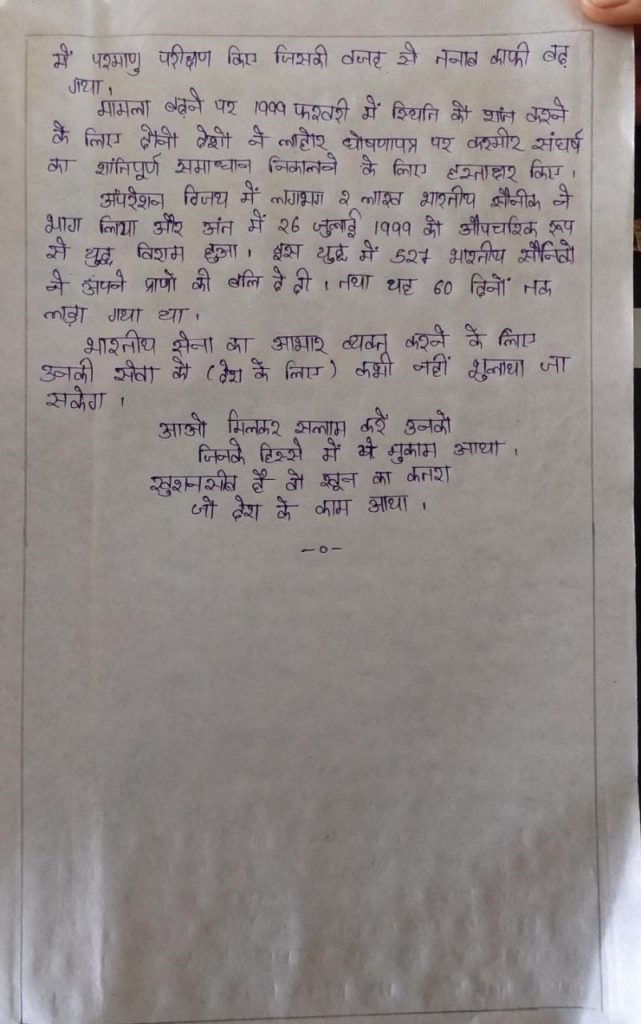 में परमाणु परीक्षण किए जिसकी वजह से तनाव काफी बढ़
गया।
मामला बढ़ने पर 1999 फरवरी में स्थिति को शांत करने
के लिए दोनो देशो ने लाहौर घोषणापत्र पर कश्मीर संघर्ष
का शांतिपूर्ण समाधान निकालने के लिए हस्ताक्षर किए।
अॉपरेशन विजय में लगभग 2 लाख भारतीय सैनीक ने
भाग लिया और अंत में 26 जुलाई 1999 को औपचरिक रूप
से युद्ध विराम हुआ। इस युद्ध में 527 भारतीय सैनिको
ने अपने प्राणों की बलि दे दी। तथा यह 60 दिनों तक
लड़ा गया था।
भारतीय सेना का आभार व्यक्त करने के लिए
उनकी सेवा को (देश के लिए) कभी नहीं भुलाया जा
सकेगा।
आओ मिलकर सलाम करें उनको
जिनके हिस्से में ये मुकाम आया,
खुशनसीब है वो खून का कतरा
जो देश के काम आया।
-०-